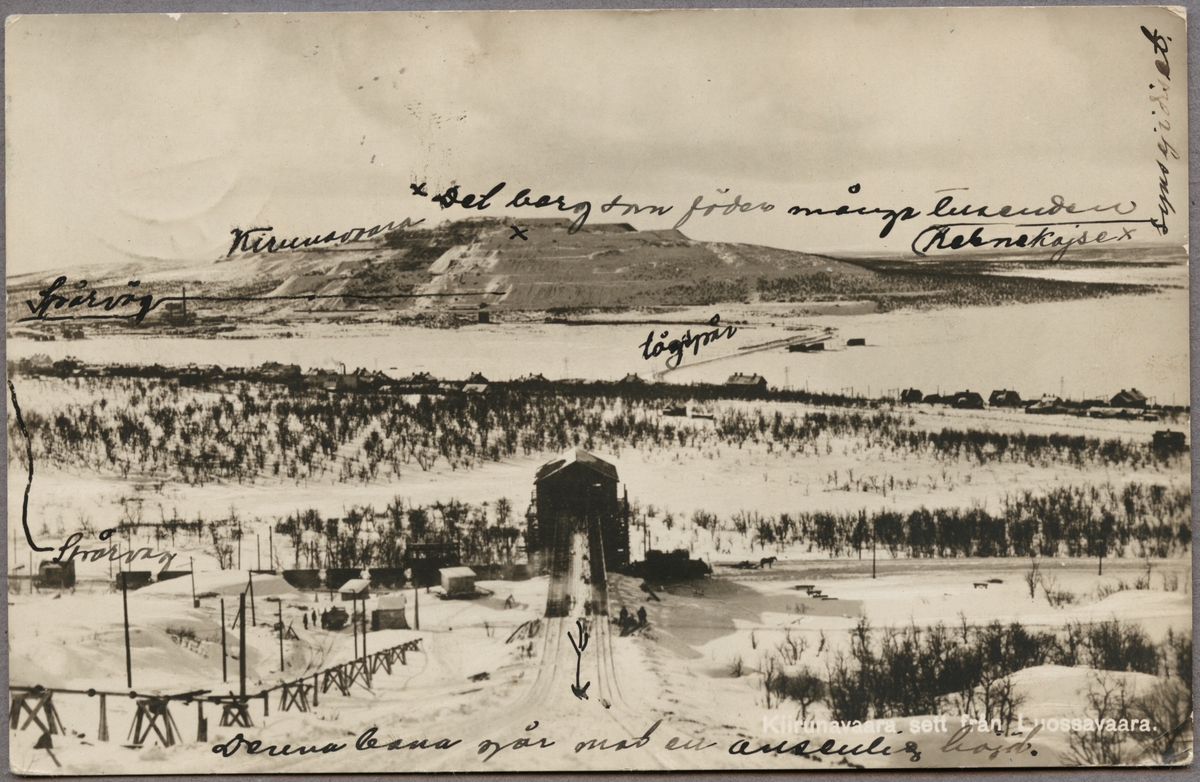 × Det berg som föder många tusenden
Kirunavara
×
(Kebnekajse ×
Spårväg
tågspår
Spårväg
Kiirunavaara sett från Luossavaara.
Denna bana går mot en ansenlig höjd.